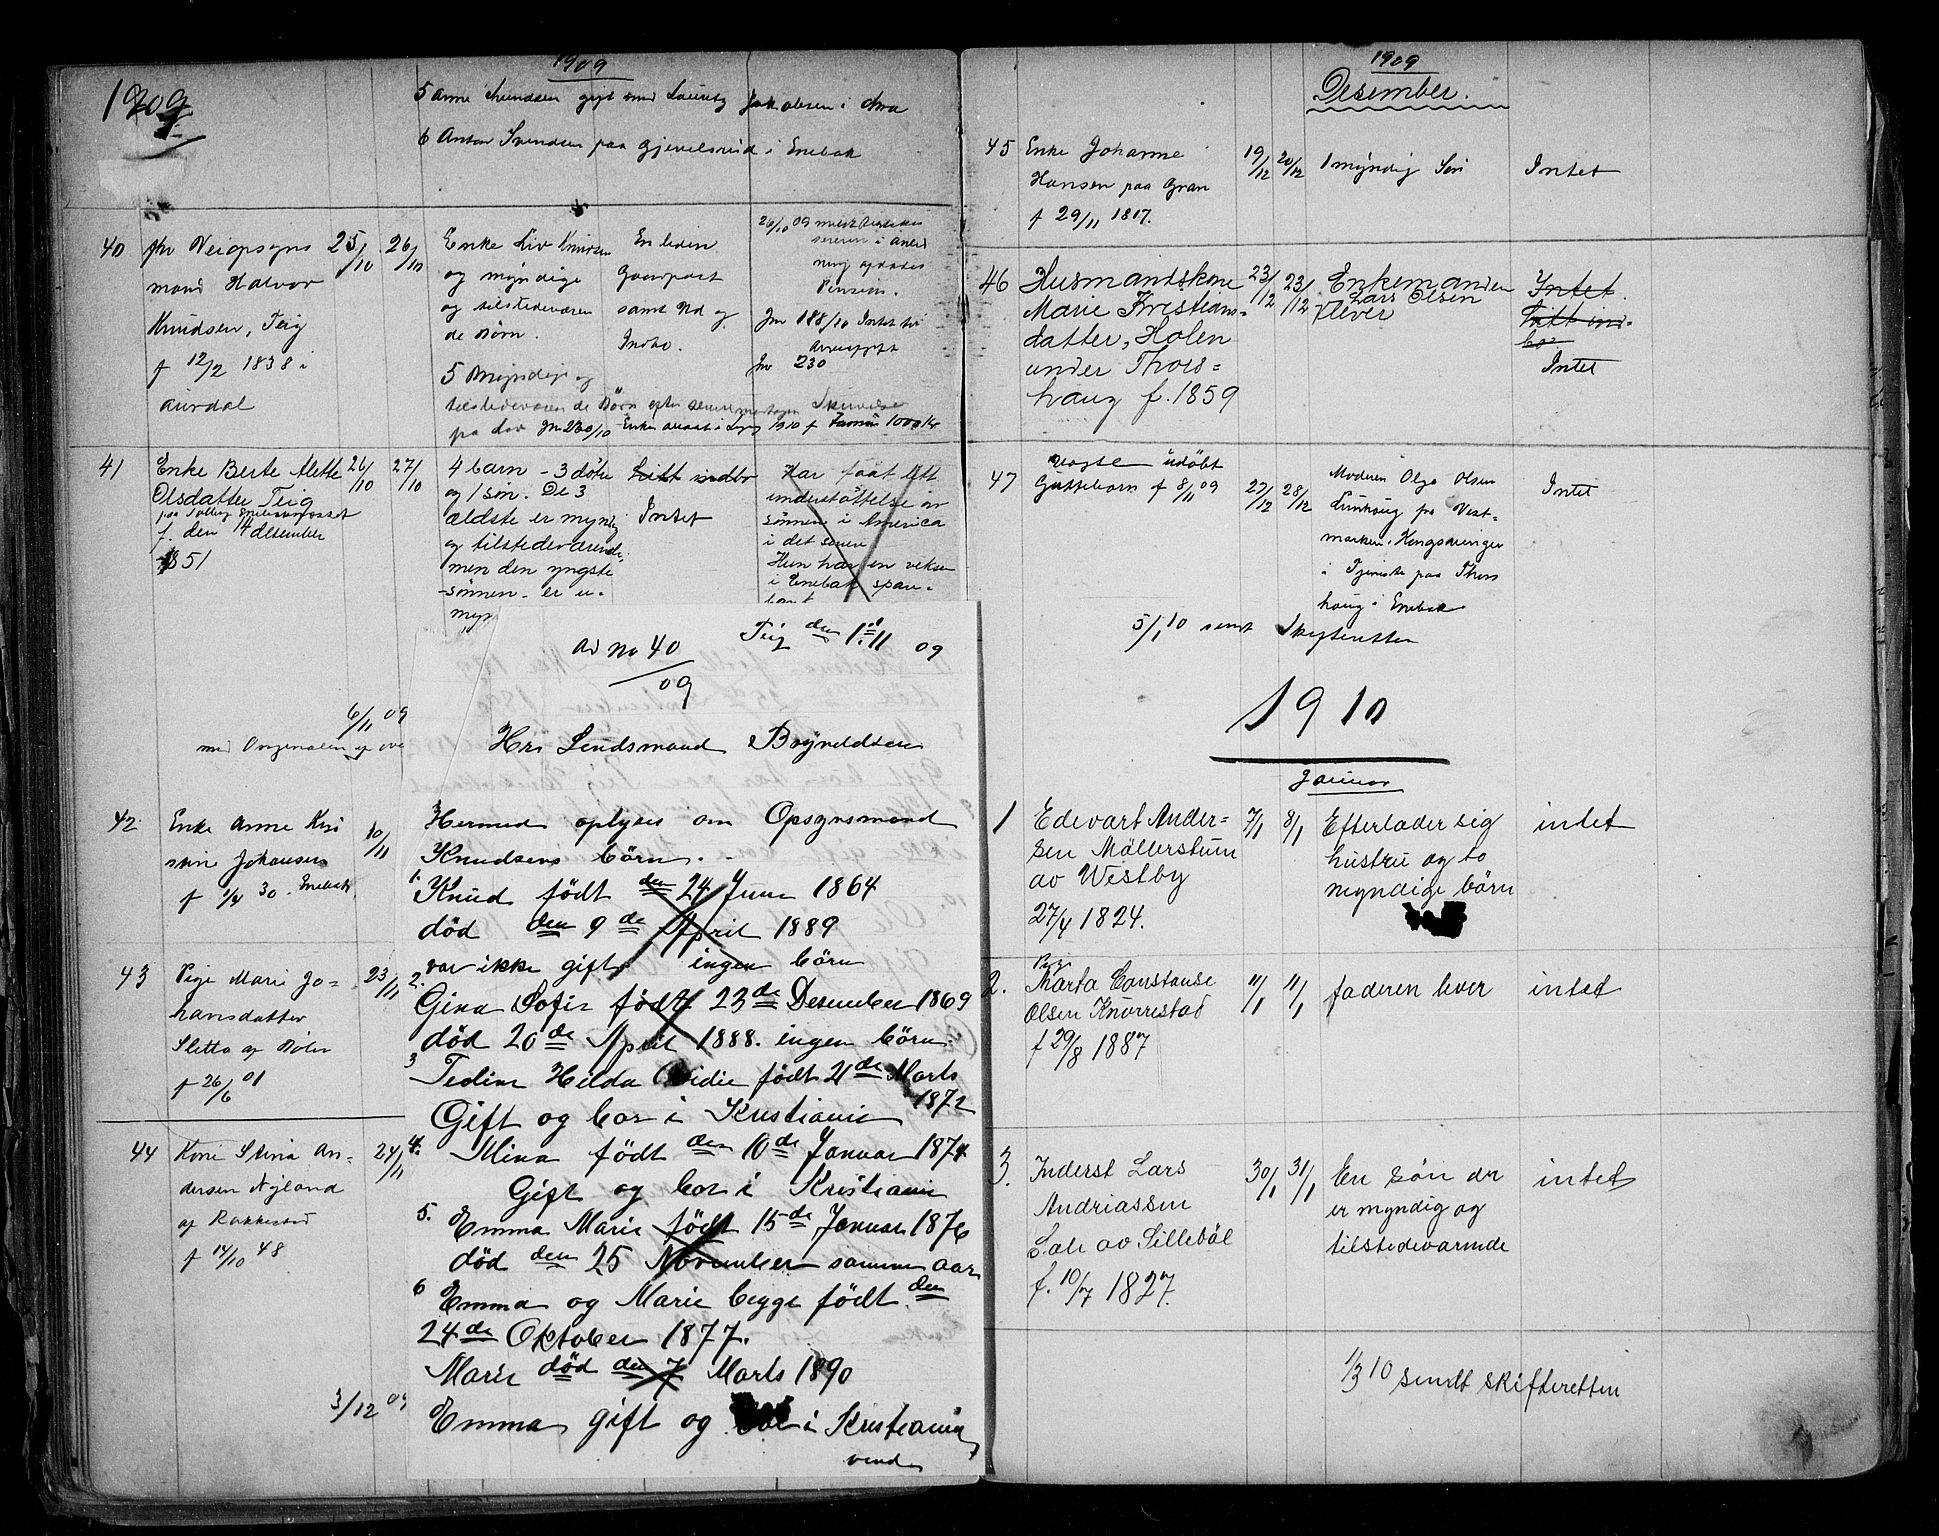 1909
1909
5 Anne Svendsen gift med Lauritz Jakobsen i
6 Anton Svendsen paa Gjevelsrud i Enebak
40 fhv Veiopsyns
mand Halvor
Knudsen, Teig
f 12/2 1838 i
Aurdal
25/10 26/10
Enke Liv Knudsen
og myndige
og tilstedeværen
de Børn.
5 Myndige og
tilstedeværende Børn efter
En liden
Gaardpart
samt Ind og
Indbo.
26/10 09
Pension.
Jnr 188/10 Intet til
Arveafgift
Jnr 230
41 Enke Berte Alette
Olsdatter Teig
f. den 14 desember
1851
26/10 27/10
4 barn - 3 døtre
og 1 søn. De 3
ældste er myndig
og tilstedeværende.
men den yngste
sønnen er u-
myn
Litt indbo
Intet
Har faat litt
understøttelse av
sønnen i America
i det senere
Hun har en veksel
i Enebak spare-
bank
6/11 09
med Originalen
42 Enke Anne Kri
stine Johansen
f 1/4 30. Enebak
10/11
43 Pige Marie Jo-
hansdatter
Sletta af Bøler
f 26/6 01
23/11
44 Kone Stina An-
dersen Nyland
af Rakkestad
f 14/10 48
24/11
3/12 09
ad no 40/09
Teig den 1. 11 09
Hrr Lendsmand Bøyneldsen
Hermed oplyses om Opsynsmand
Knudsens børn.
1. Knud født den 24 Juni 1864
død den 9de April 1889
var ikke gift ingen børn
2. Gina Sofie født 23de Desember 1869
død 20de April 1888. ingen børn.
3 Tedine Hilda født 21de Marts
1872
Gift og bor i Kristiania
4. Mina født den 10de Januar 1874
Gift og bor i Kristiania
5. Emma Marie født 15de Januar 1876
død den 25 November samme aar
6 Emma og Marie begge født den
24de Oktober 1877.
Marie død den 7 Marts 1890
Emma gift og bor i Kristiania
vend
1909
Desember.
45 Enke Johanne
Hansen paa Gran
f 29/11 1817.
19/12 20/12 1 myndig Søn Intet
46 Husmandskone
Marie Kristians-
datter, Holen
under Thors-
haug f. 1859
23/12 23/12
Enkemanden
Lars Olsen
lever
Intet.
Litt ind-
bo
Intet
47 udøbt
Guttebarn f 8/11 09
27/12 28/12
Moderen Olga Olsen
Lunhaug paa Vest-
marken, Kongsvinger
i Tjeneste paa Thors
haug i Enebak
Intet
5/1 10 sendt Skifteretten
1910
Januar
1 Edevart Ander-
sen Møllerstuen
av Vestby
27/4 1824.
7/1 8/1
Efterlader sig
hustru og to
myndige børn
intet
2. Pige
Marta Constanse
Olsen Knorrestad
f 29/8 1887
11/1 11/1 faderen lever intet
3. Inderst Lars
Andriassen
Lale av Sillebøl
f. 10/7 1827.
30/1 31/1
En søn der
er myndig og
tilstedevarende
intet
1/3 10 sendt skifteretten